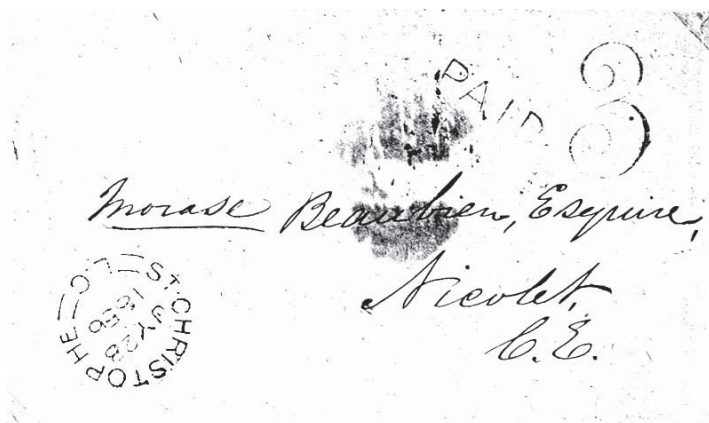 PAID 3
Morase Beaubien, Esquire,
Nicolet,
C.E.
ST. CHRISTOPHE L.C
JY 28
1856